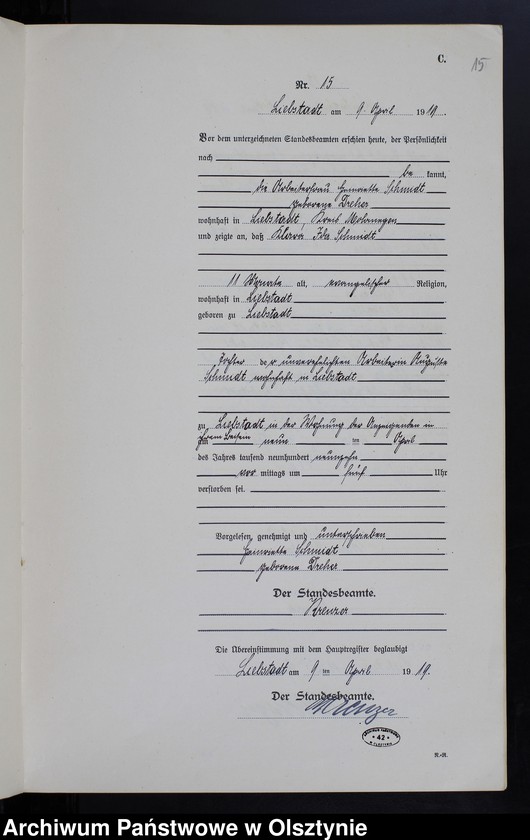 C.
15
Nr. 15
Liebstadt am 9 April 1919.
Vor dem unterzeichneten Standesbeamten erschien heute, der Persönlichkeit
nach
be kannt,
die Arbeiterfrau Henriette Schmidt
geborene Dreher
wohnhaft in Liebstadt, Kreis Mohrungen
und zeigte an, daß Klara Ida Schmidt
11 Monate alt, evangelischer Religion,
wohnhaft in Liebstadt
geboren zu Liebstadt
Tochter der unverehelichten Arbeiterin Auguste
Schmidt wohnhaft in Liebstadt
zu Liebstadt in der Wohnung der Anzeigenden in
ihrem Beisein
am neun ten April
des Jahres tausend neunhundert neunzehn
vor mittags um fünf Uhr
verstorben sei.
Vorgelesen, genehmigt und unterschrieben
Henriette Schmidt
geborene Dreher
Der Standesbeamte.
Krenzer
Die Übereinstimmung mit dem Hauptregister beglaubigt
Liebstadt am 9 ten April 1919.
Der Standesbeamte.
Krenzer
42
R.-R.
Archiwum Państwowe w Olsztynie